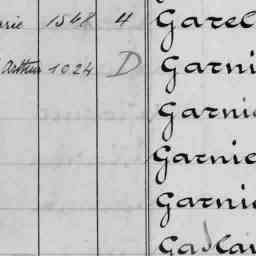 arie 1548 4 Garel
Arthur 1024 D Garni
Garni
Garnie
Garnie